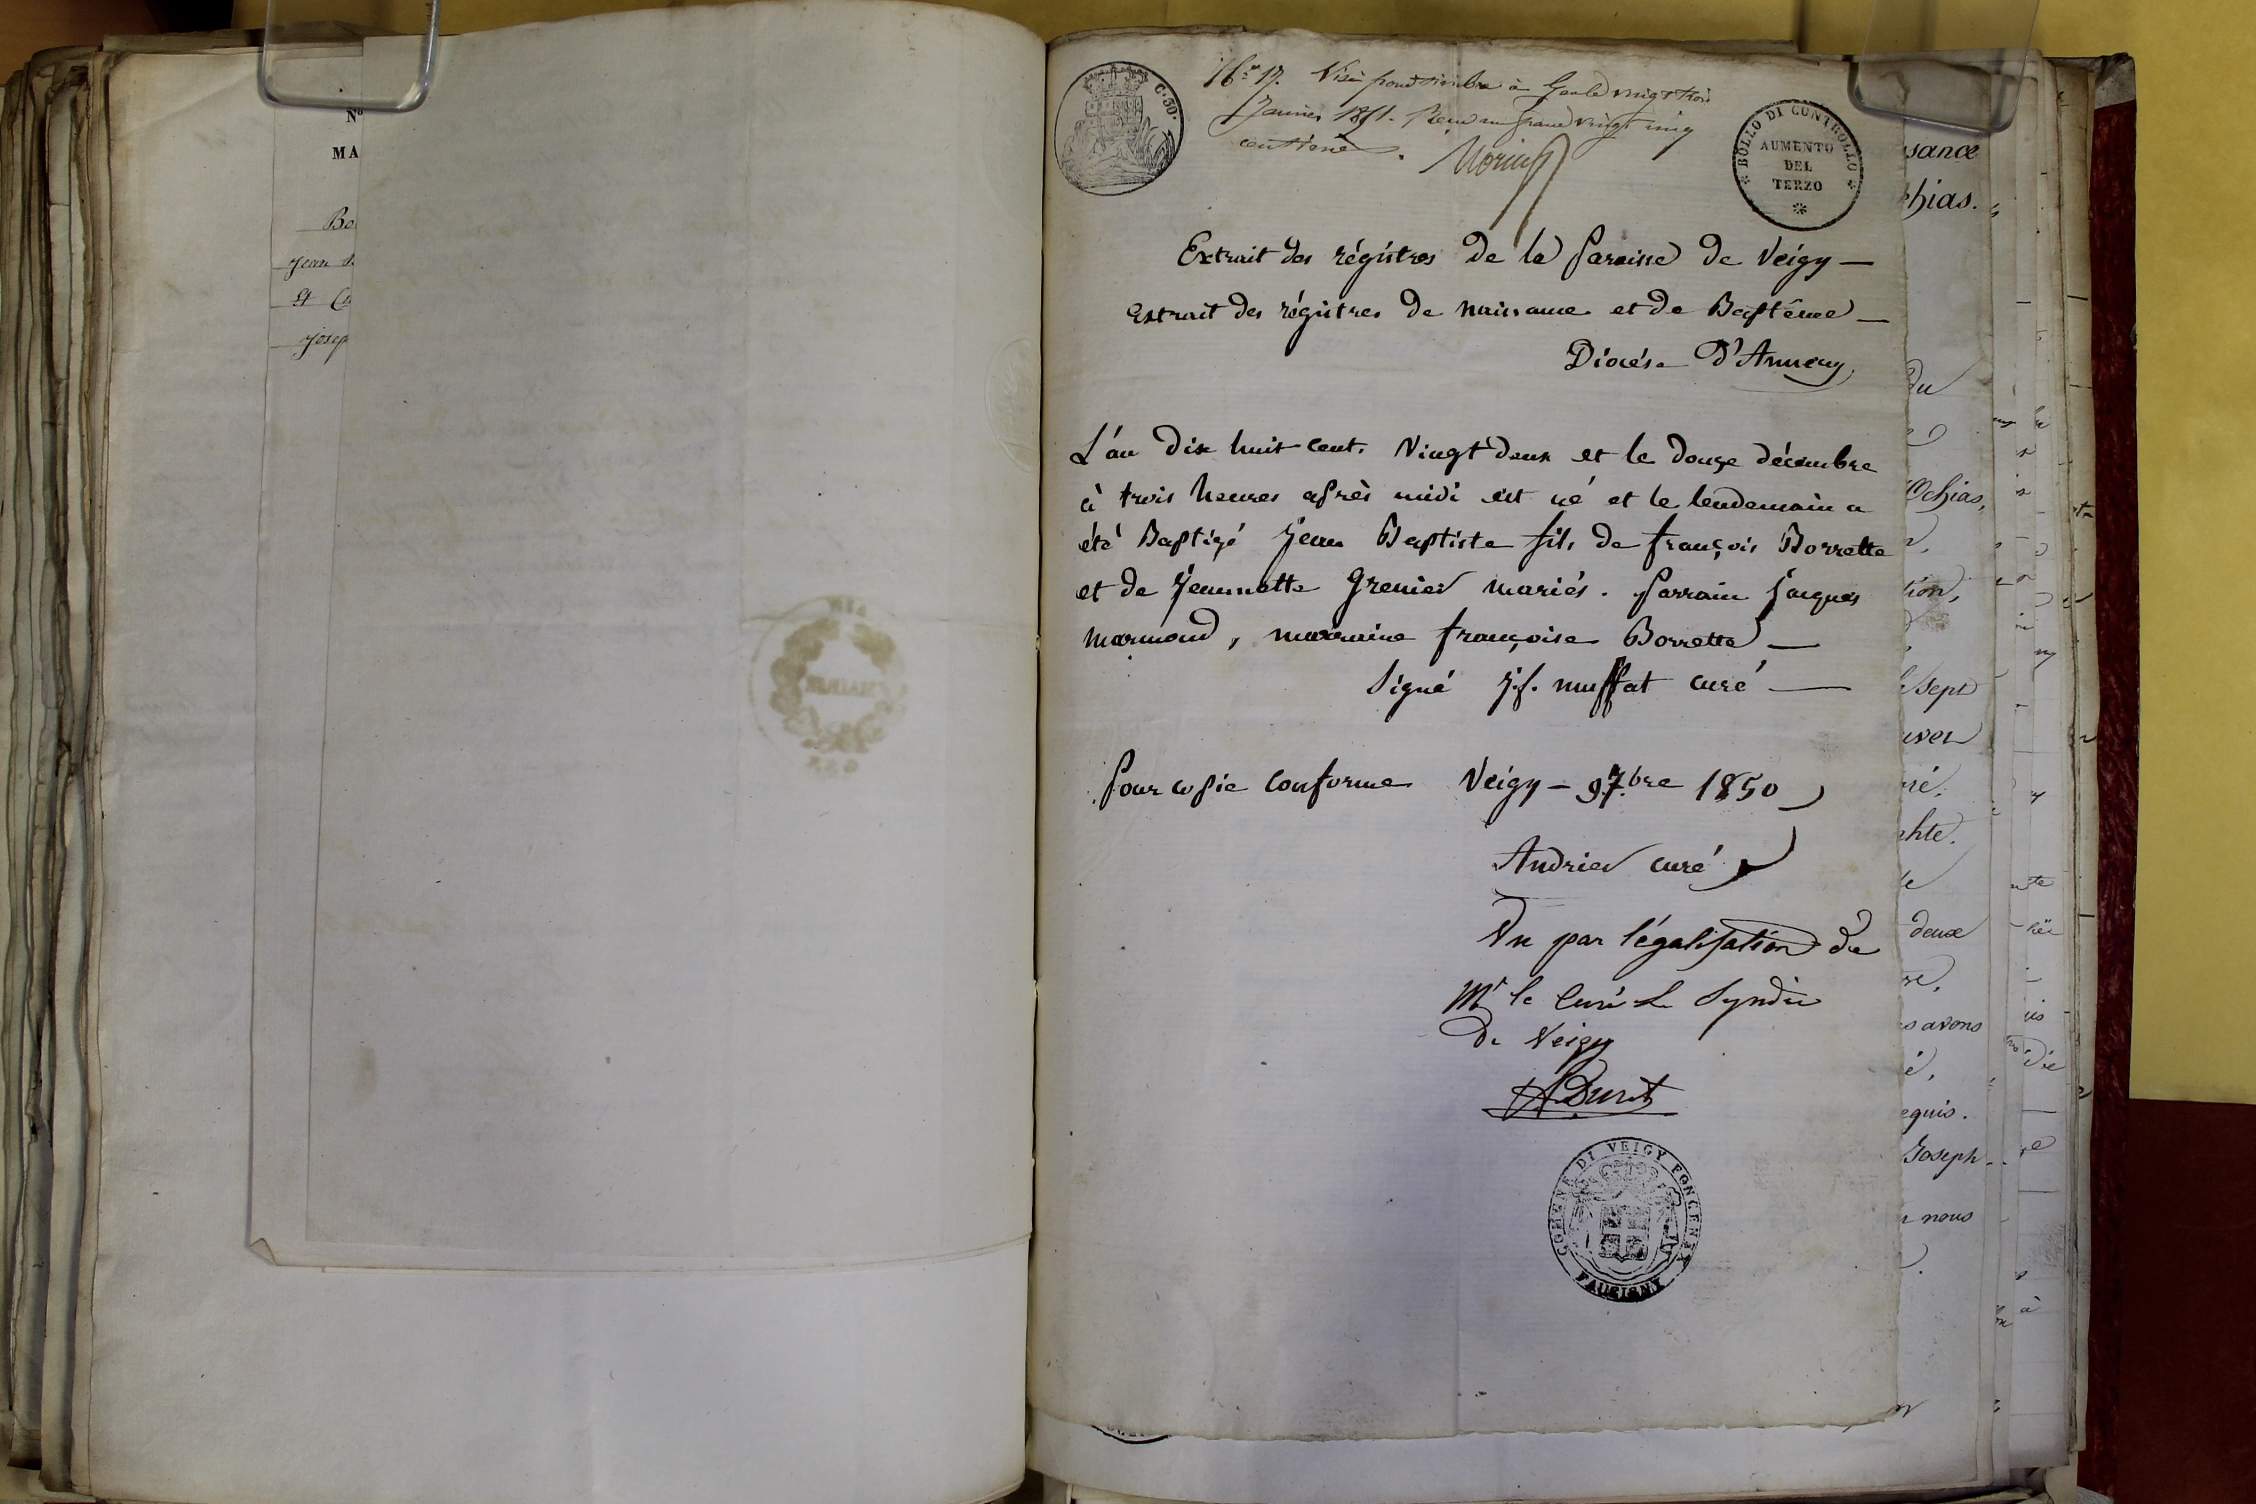 Nº
MA
Bo
Jean
et
Josep
C. 50.
Visé pour timbre à Gex le vingt trois
Janvier 1851. Reçu un franc vingt cinq
centimes.
BOLLO DI CONTROLLO
AUMENTO
DEL
TERZO
Extrait des régistres de la Paroisse de Veigy —
Extrait des régistres de naissance et de Baptême —
Diocèse D'Annecy,
L'an dix huit cent. vingt deux et le douze décembre
à trois heures après midi est né et le lendemain a
été Baptizé Jean Baptiste fils de françois Borrette
et de Jeannette Grenier mariés. Parrain Jacques
Marmoud, marraine françoise Borrette —
Signé J.f. muffat curé —
Pour copie conforme Veigy — 9 7.bre 1850
Andrier curé
Vu par légalisation de
Mr le Curé Le Syndic
de Veigy
COMUNE DI VEIGY FONCENEX
FAUCIGNY
MAIRIE
sance
chias.
du
Ochias,
tion,
sept
uver
deux
avons
equis.
Joseph
nous